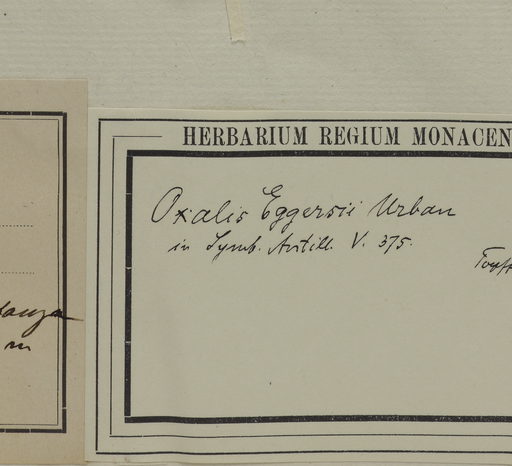 HERBARIUM REGIUM MONACEN
Oxalis Eggersii Urban
in Symb. Antill. V. 375.
m